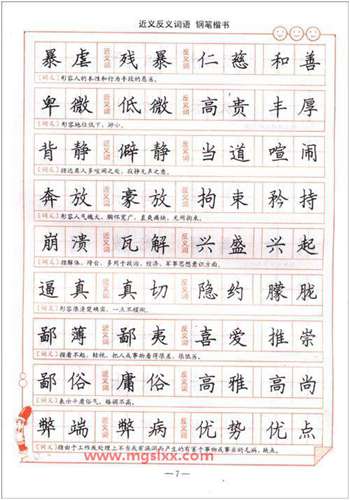 近义反义词语 钢笔楷书
暴虐 近义词 残暴 反义词 仁慈 和善
【词义】形容人的本性和行为手段的恶劣。
卑微 近义词 低微 反义词 高贵 丰厚
【词义】形容地位低下，渺小。
背静 近义词 僻静 反义词 当道 喧闹
【词义】指远离人多喧闹之处，寂静无声之意。
奔放 近义词 豪放 反义词 拘束 矜持
【词义】形容人气魄大，胸怀宽广，直爽痛快，无所拘束。
崩溃 近义词 瓦解 反义词 兴盛 兴起
【词义】指解体，垮台，多用于政治、经济、军事思想意识方面。
逼真 近义词 真切 反义词 隐约 朦胧
【词义】形容很清楚确实，一点不模糊。
鄙薄 近义词 鄙夷 反义词 喜爱 推崇
【词义】指看不起，轻视，把人或事物看得很差、很低劣。
鄙俗 近义词 庸俗 反义词 高雅 高尚
【词义】表示平庸俗气，格调不高。
弊端 近义词 弊病 反义词 优势 优点
【词义】指由于工作或处理上不当或有漏洞而产生的有害于事物或事业的毛病、缺点。
www.mgslxx.com
— 7 —